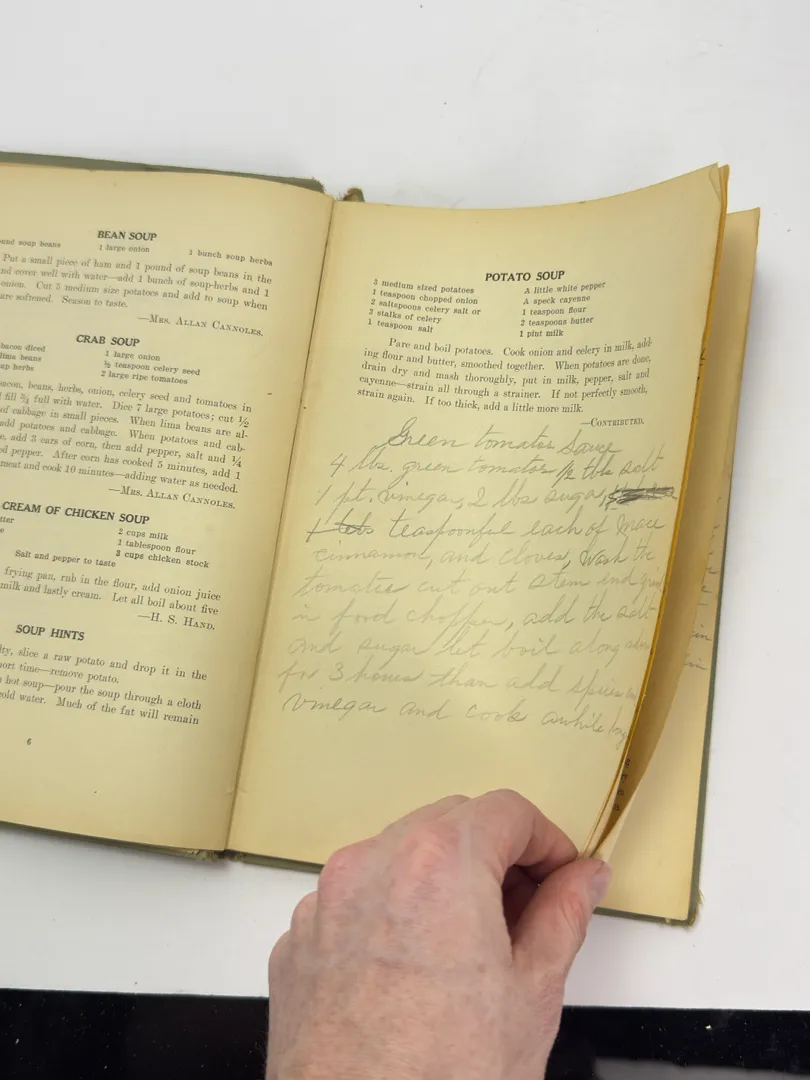 BEAN SOUP
und soup beans 1 large onion 1 bunch soup herbs
Put a small piece of ham and 1 pound of soup beans in the
nd cover well with water—add 1 bunch of soup-herbs and 1
onion. Cut 5 medium size potatoes and add to soup when
are softened. Season to taste.
—MRS. ALLAN CANNOLES.
CRAB SOUP
bacon diced 1 large onion
lima beans ½ teaspoon celery seed
up herbs 2 large ripe tomatoes
acon, beans, herbs, onion, celery seed and tomatoes in
fill ⅔ full with water. Dice 7 large potatoes; cut ½
of cabbage in small pieces. When lima beans are al-
add potatoes and cabbage. When potatoes and cab-
e, add 3 ears of corn, then add pepper, salt and ¼
ed pepper. After corn has cooked 5 minutes, add 1
meat and cook 10 minutes—adding water as needed.
—MRS. ALLAN CANNOLES.
CREAM OF CHICKEN SOUP
tter 2 cups milk
e 1 tablespoon flour
3 cups chicken stock
Salt and pepper to taste
frying pan, rub in the flour, add onion juice
milk and lastly cream. Let all boil about five
—H. S. HAND.
SOUP HINTS
lty, slice a raw potato and drop it in the
hort time—remove potato.
hot soup—pour the soup through a cloth
cold water. Much of the fat will remain
6
POTATO SOUP
3 medium sized potatoes A little white pepper
1 teaspoon chopped onion A speck cayenne
2 saltspoons celery salt or 1 teaspoon flour
3 stalks of celery 2 teaspoons butter
1 teaspoon salt 1 pint milk
Pare and boil potatoes. Cook onion and celery in milk, add-
ing flour and butter, smoothed together. When potatoes are done,
drain dry and mash thoroughly, put in milk, pepper, salt and
cayenne—strain all through a strainer. If not perfectly smooth,
strain again. If too thick, add a little more milk.
—CONTRIBUTED.
Green tomatoe Sauce
4 lbs. green tomatoes ½ tbls salt
1 pt. vinegar, 2 lbs sugar,
1 teaspoonful each of mace
cinnamon, and cloves, wash the
tomatoes cut out stem end
in food chopper, add the salt
and sugar let boil along
for 3 hours than add spices
vinegar and cook awhile